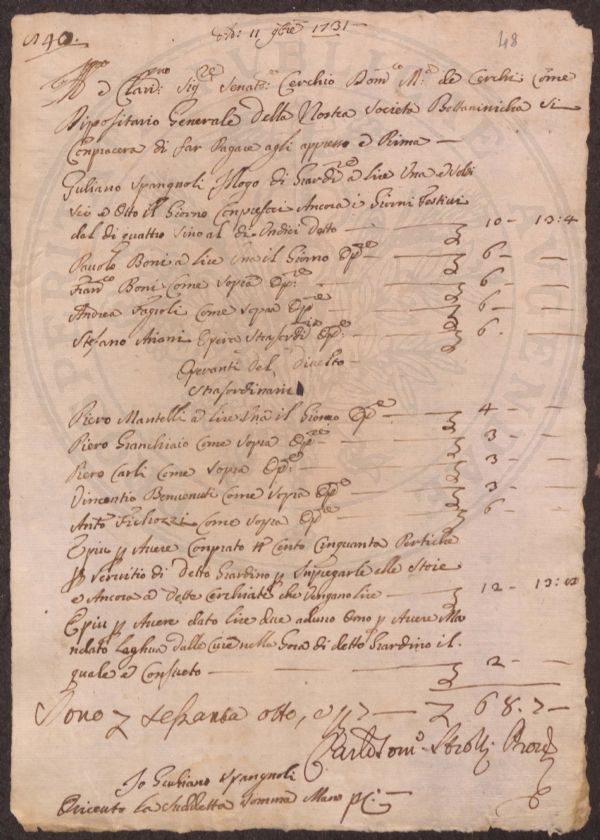 N 40.
Adì: 11 9bre 1731
48
Ill:mo e Clari:mo Sig:re Senat:re Cerchio Dom:co M:a de Cerchi Come
Dipositario Generale della Nostra Società Bottaninicha Si
Conpiacera di far Pagare agli appresso e Prima —
Giuliano Spangnoli Mogo di Giard:o a lire Una e Soldi
Sei e Otto il Giorno Conpresoci Ancora i Giorni Festivi
dal di quattro Sino al di Undici Detto — 10 — 13:4
Pavolo Boni a lire Una il Giorno Op:re — 6 —
Fran:co Boni Come Sopra Op:re — 6 —
Andrea Fagioli Come Sopra Op:re — 6 —
Stefano Ariani Opera Strasord:rio Op:re — 6 —
Operanti Del Divelto
Strasordinari
Piero Mantelli a lire Una il Giorno Op:re — 4 —
Piero Granchiaio Come Sopra Op:re — 3 —
Piero Carli Come Sopra Op:re — 3 —
Vincentio Benvenuti Come Sopra Op:re — 3 —
Ant:o Fichozzi Come Sopra Op:re — 6 —
E piu p Avere Conprato n Cento Cinquanta Pertiche
p Servitio di Detto Giardino p Inpiegarle alle Stoie
e Ancora a Dette Cerchiate che Vengano lire — 12 — 13:
E piu p Avere dato lire due aduno Omo p Avere Ma
ndato Laghua dalle Cure nella Gora di detto Giardino il
quale è Consueto — 2 —
Sono 7 sessanta otto, e 7 — 7 68. 7 —
Bartolom:o Prov:re
Io Giuliano Spangnoli
O riceuto la Suddetta Somma Mano p:a